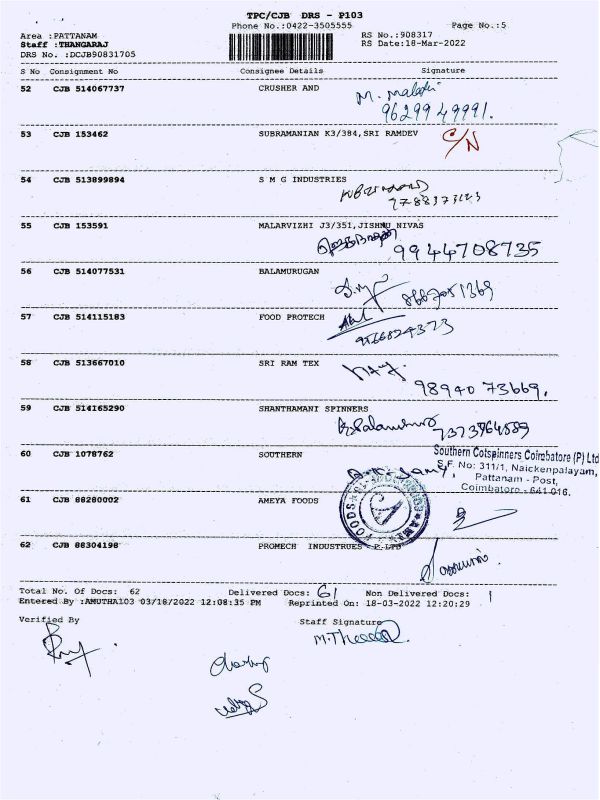 TPC/CJB DRS - P103
Phone No.:0422-3505555 Page No.:5
Area :PATTANAM RS No.:908317
Staff :THANGARAJ RS Date:18-Mar-2022
DRS No. :DCJB90831705
S No Consignment No Consignee Details Signature
52 CJB 514067737 CRUSHER AND M. Malathi
9629949991.
53 CJB 153462 SUBRAMANIAN K3/384,SRI RAMDEV C/N
54 CJB 513899894 S M G INDUSTRIES
55 CJB 153591 MALARVIZHI J3/351,JISHNU NIVAS
9944708735
56 CJB 514077531 BALAMURUGAN
57 CJB 514115183 FOOD PROTECH
58 CJB 513667010 SRI RAM TEX
98940 73669.
59 CJB 514165290 SHANTHAMANI SPINNERS
60 CJB 1078762 SOUTHERN
Southern Cotspinners Coimbatore (P) Ltd
S.F. No: 311/1, Naickenpalayam,
Pattanam - Post,
Coimbatore - 641 016.
61 CJB 88280002 AMEYA FOODS
62 CJB 88304198 PROMECH INDUSTRUES P.LTD
Total No. Of Docs: 62 Delivered Docs: 61 Non Delivered Docs: 1
Entered By :AMUTHA103 03/18/2022 12:08:35 PM Reprinted On: 18-03-2022 12:20:29
Verified By Staff Signature